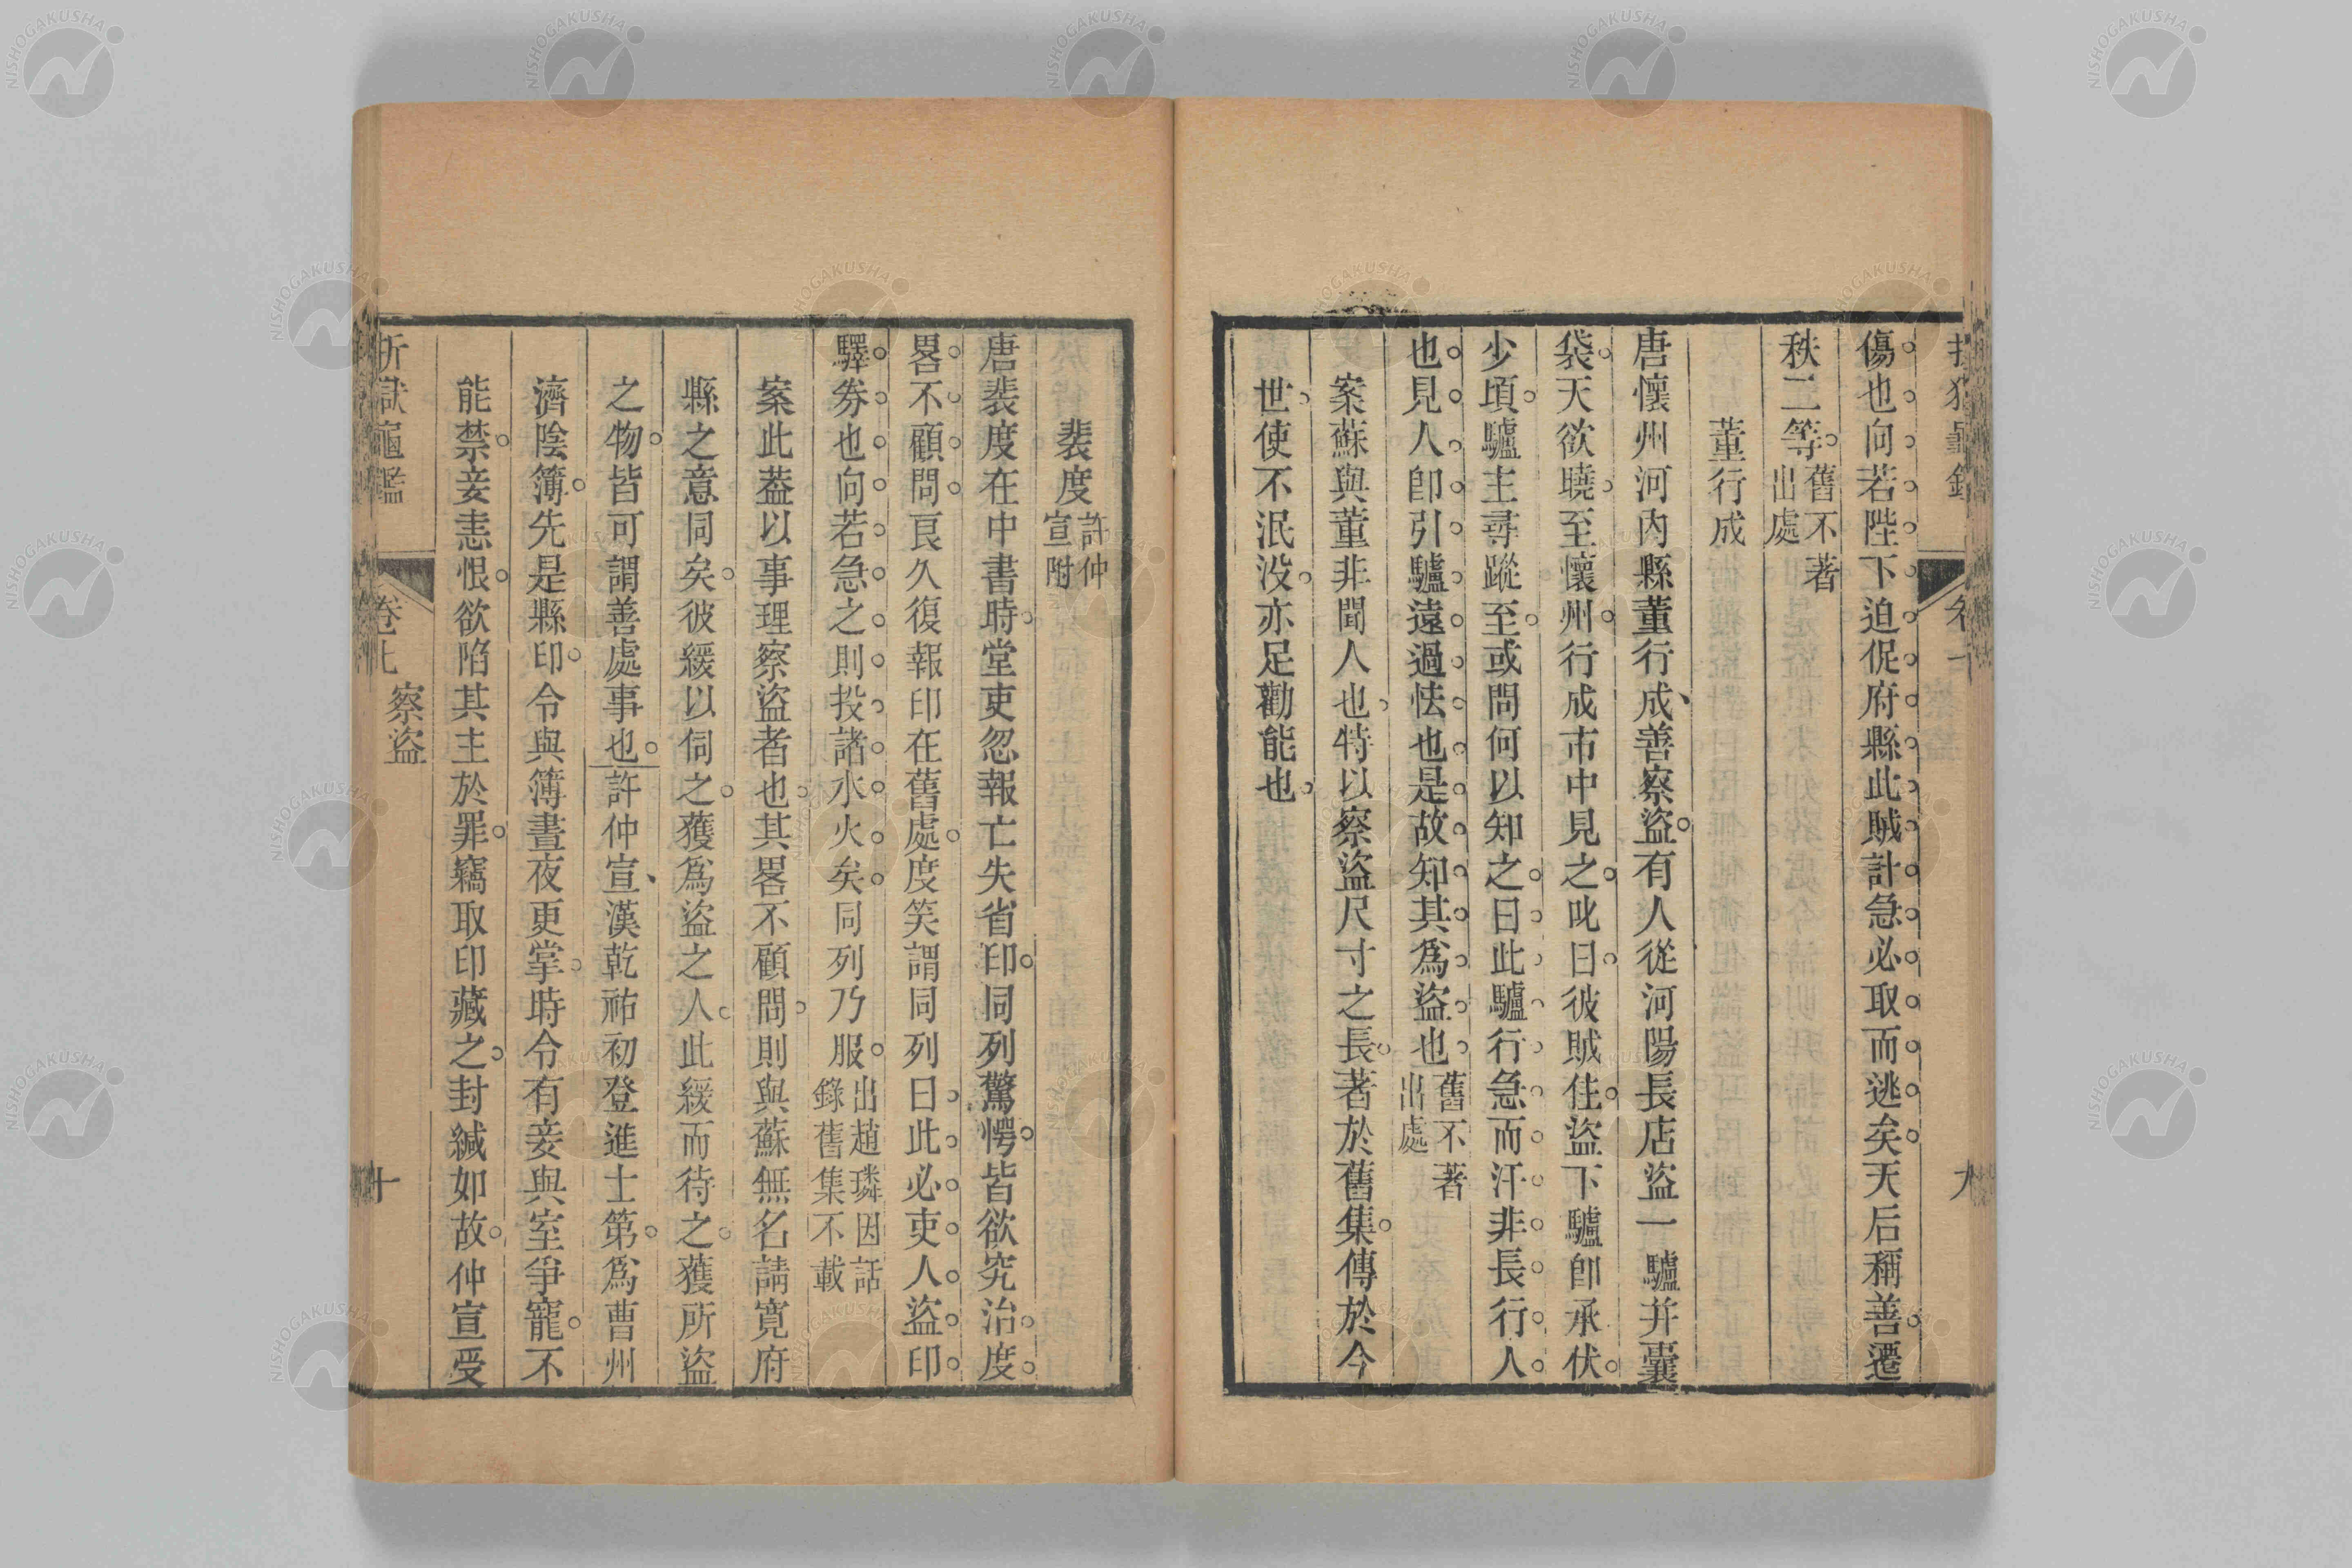 傷也向若陛下迫促府縣此賊計急必取而逃矣天后稱善遷
秩二等舊不著出處
董行成
唐懷州河內縣董行成善察盜有人從河陽長店盜一驢并囊
袋天欲曉至懷州行成市中見之叱曰彼賊住盜下驢卽承伏
少頃驢主尋蹤至或問何以知之曰此驢行急而汗非長行人
也見人卽引驢遠過怯也是故知其爲盜也舊不著出處
案蘇與董非聞人也特以察盜尺寸之長著於舊集傳於今
世使不泯沒亦足勸能也
裴度許仲宣附
唐裴度在中書時堂吏忽報亡失省印同列驚愕皆欲究治度
畧不顧問良久復報印在舊處度笑謂同列曰此必吏人盜印
驛券也向若急之則投諸水火矣同列乃服出趙璘因話錄舊集不載
案此葢以事理察盜者也其畧不顧問則與蘇無名請寬府
縣之意同矣彼緩以伺之獲爲盜之人此緩而待之獲所盜
之物皆可謂善處事也許仲宣漢乾祐初登進士第爲曹州
濟陰簿先是縣印令與簿晝夜更掌時令有妾與室爭寵不
能禁妾恚恨欲陷其主於罪竊取印藏之封緘如故仲宣受
折獄龜鑑
卷七
察盜
十
NISHOGAKUSHA